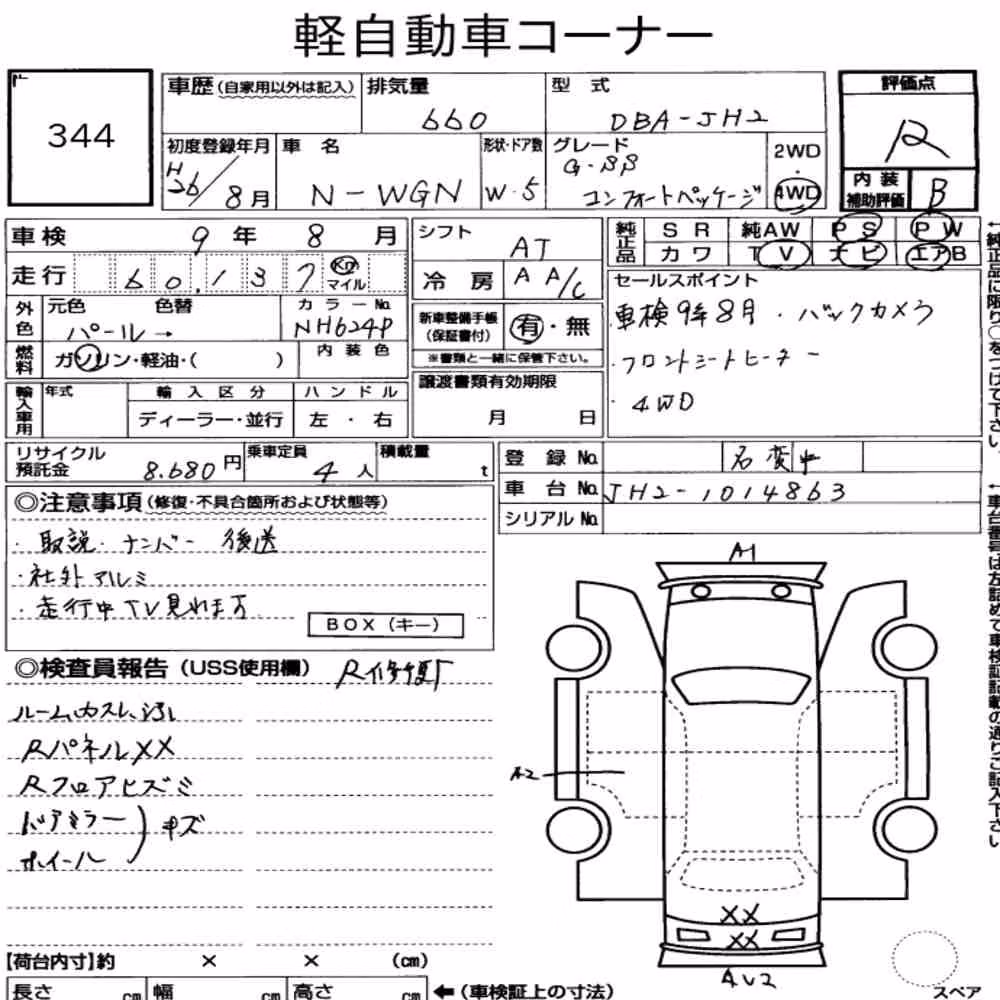 軽自動車コーナー
344
車歴(自家用以外は記入) 排気量 660 型式 DBA-JH2
評価点 R
初度登録年月 H26/8月 車名 N-WGN 形状・ドア数 W・5 グレード G・SS コンフォートパッケージ 2WD・4WD
内装補助評価 B
車検 9年8月
走行 60,137 Km マイル
外色 元色 パール→ 色替 カラーNo. NH624P
燃料 ガソリン・軽油・( ) 内装色
輸入車用 年式 輸入区分 ディーラー・並行 ハンドル 左・右
シフト AT
冷房 AA/C
新車整備手帳(保証書付) 有・無
※書類と一緒に保管下さい。
譲渡書類有効期限 月 日
純正品 SR 純AW PS PW
カワ TV ナビ エアB
セールスポイント
・車検9年8月 ・バックカメラ
・フロントシートヒーター
・4WD
←純正品に限り○をつけて下さい。
リサイクル預託金 8,680円 乗車定員 4人 積載量 t
登録No. 名変中
車台No. JH2-1014863
シリアルNo.
←車台番号は左詰めで車検証記載の通りご記入下さい
◎注意事項(修復・不具合箇所および状態等)
・取説・ナンバー 後送
・社外アルミ
・走行中TV見れます
BOX(キー)
◎検査員報告(USS使用欄) R修復歴
ルームカスレ、汚レ
RパネルXX
Rフロアヒズミ
ドアミラー
ホイール
キズ
A1
A2
XX
XX
AU2
【荷台内寸】約 × × (cm)
長さ cm 幅 cm 高さ cm ←(車検証上の寸法)
スペア